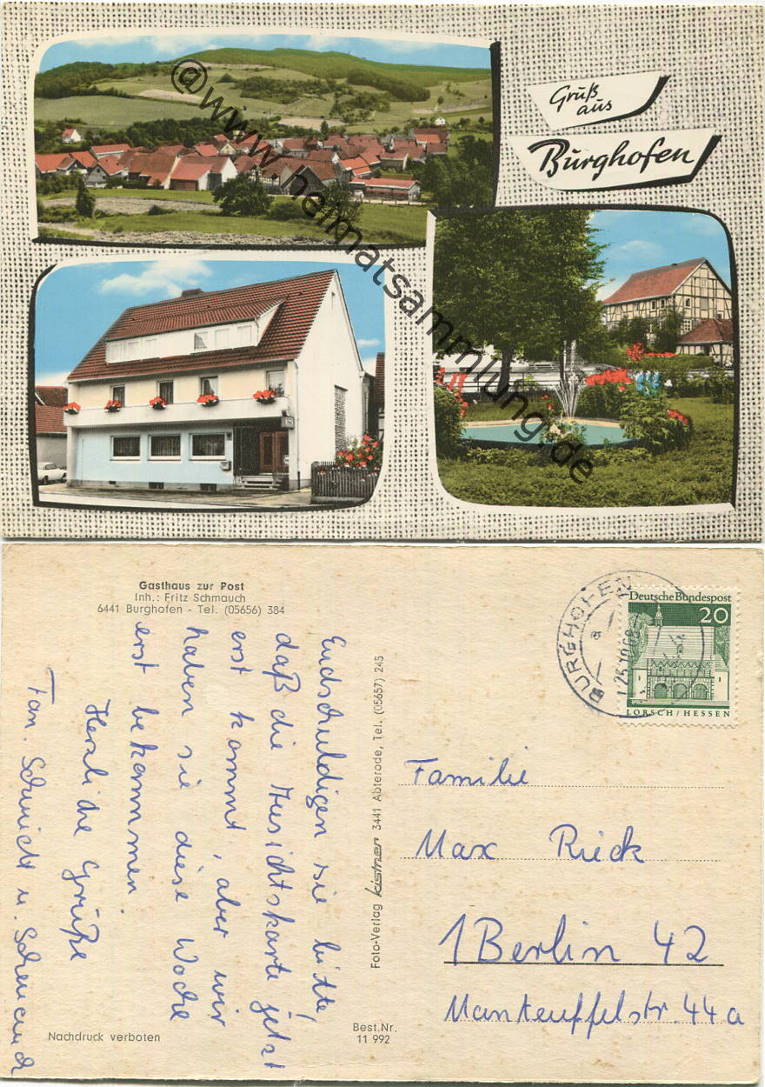 Gruß
aus
Burghofen
@www.heimatsammlung.de
Gasthaus zur Post
Inh.: Fritz Schmauch
6441 Burghofen - Tel. (05656) 384
Endschuldigen sie bitte,
daß die Ansichtskarte jetzt
erst kommt, aber wir
haben sie diese Woche
erst bekommen.
Herzliche Grüße
Fam. Schmidt u. Schmauch
Nachdruck verboten
Foto-Verlag kistner 3441 Abterode, Tel. (05657) 245
Best.Nr.
11 992
BURGHOFEN
a
Deutsche Bundespost
20
LORSCH/HESSEN
Familie
Max Rieck
1 Berlin 42
Manteuffelstr. 44a